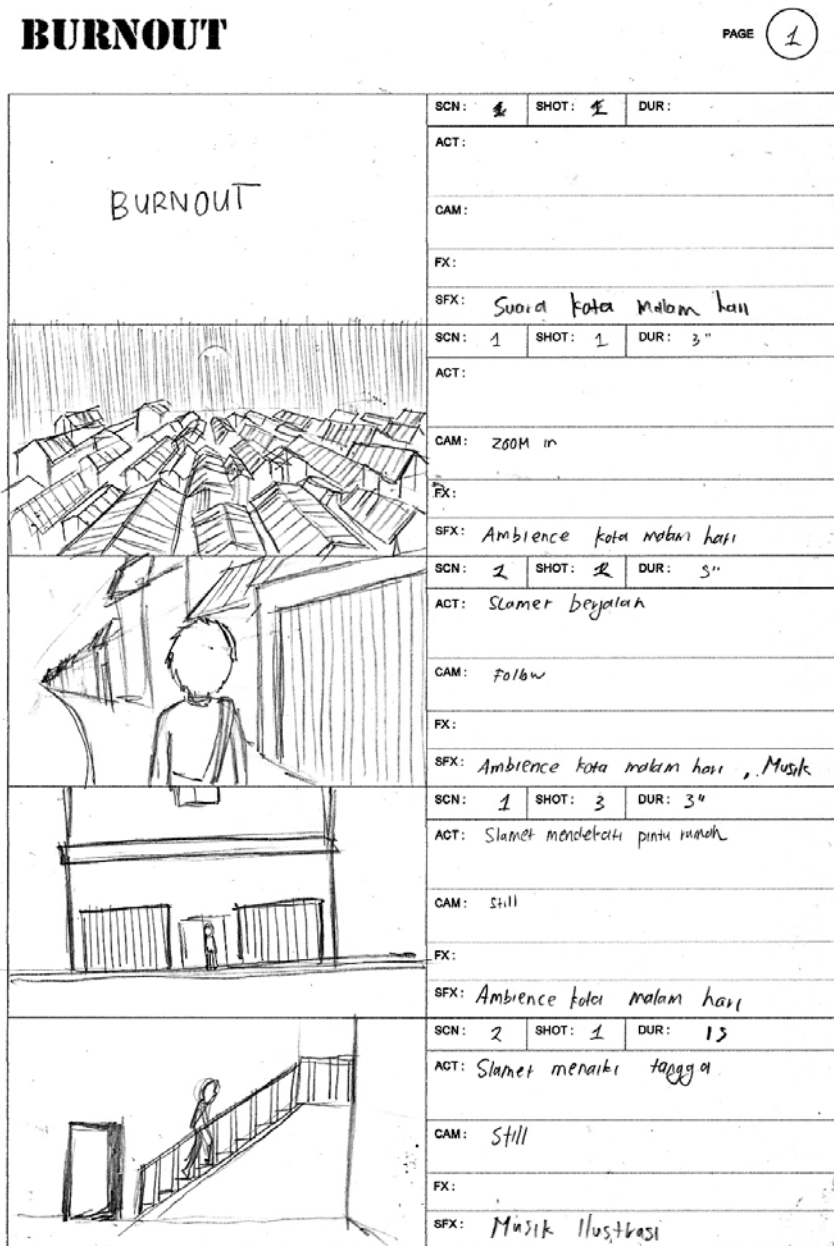 BURNOUT
PAGE 1
BURNOUT
SCN: 1 SHOT: 1 DUR:
ACT:
CAM:
FX:
SFX: Suara kota malam hari
SCN: 1 SHOT: 1 DUR: 3"
ACT:
CAM: ZOOM in
FX:
SFX: Ambience kota malam hari
SCN: 1 SHOT: 2 DUR:
ACT: Slamet berjalan
CAM: Follow
FX:
SFX: Ambience kota malam hari, Musik
SCN: 1 SHOT: 3 DUR: 3"
ACT: Slamet mendekati pintu rumah
CAM: Still
FX:
SFX: Ambience kota malam hari
SCN: 2 SHOT: 1 DUR:
ACT: Slamet menaiki tangga
CAM: Still
FX:
SFX: Musik Ilustrasi